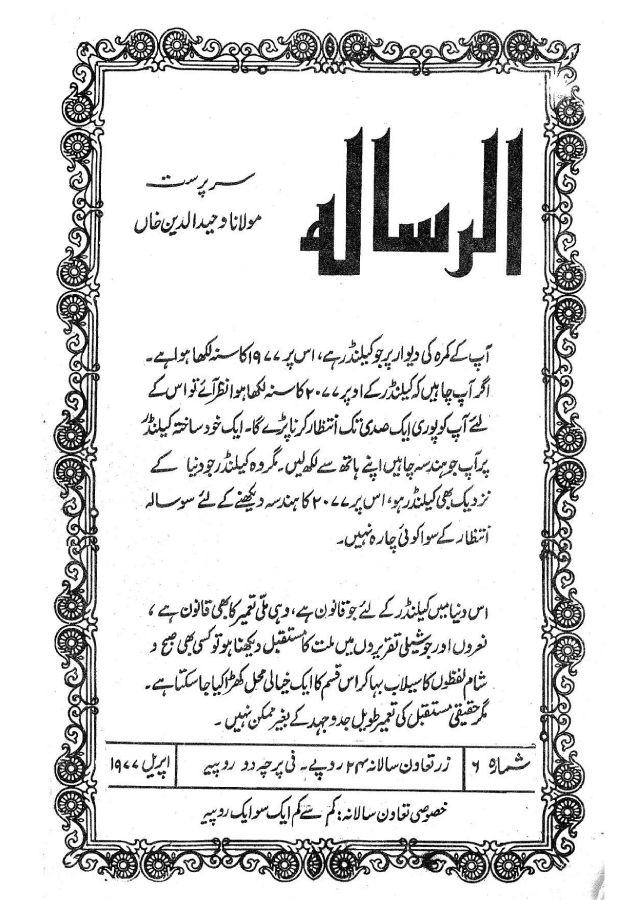 الرسالہ
سرپرست
مولانا وحید الدین خاں
آپ کے کمرہ کی دیوار پر جو کیلنڈر ہے، اس پر ۱۹۷۷ کا سنہ لکھا ہوا ہے۔
اگر آپ چاہیں کہ کیلنڈر کے اوپر ۲۰۷۷ کا سنہ لکھا ہوا نظر آئے تو اس کے
لئے آپ کو پوری ایک صدی تک انتظار کرنا پڑے گا۔ ایک خود ساختہ کیلنڈر
پر آپ جو ہندسہ چاہیں اپنے ہاتھ سے لکھ لیں۔ مگر وہ کیلنڈر جو دنیا کے
نزدیک بھی کیلنڈر ہو، اس پر ۲۰۷۷ کا ہندسہ دیکھنے کے لئے سو سالہ
انتظار کے سوا کوئی چارہ نہیں۔
اس دنیا میں کیلنڈر کے لئے جو قانون ہے، وہی ملی تعمیر کا بھی قانون ہے،
نعروں اور جوشیلی تقریروں میں ملت کا مستقبل دیکھنا ہو تو کسی بھی صبح و
شام لفظوں کا سیلاب بہا کر اس قسم کا ایک خیالی محل کھڑا کیا جا سکتا ہے۔
مگر حقیقی مستقبل کی تعمیر طویل جدوجہد کے بغیر ممکن نہیں۔
شمارہ ۶ زر تعاون سالانہ ۲۴ روپے۔ فی پرچہ دو روپیہ اپریل ۱۹۷۷
خصوصی تعاون سالانہ: کم سے کم ایک سو ایک روپیہ